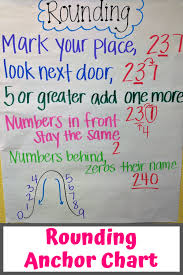 Rounding
Mark your place, 237
look next door, 237
5 or greater add one more
237
+4
Numbers in front
stay the same
2
Numbers behind,
zeros their name
240
4 5
3 6
2 7
1 8
0 9
0
Rounding
Anchor Chart